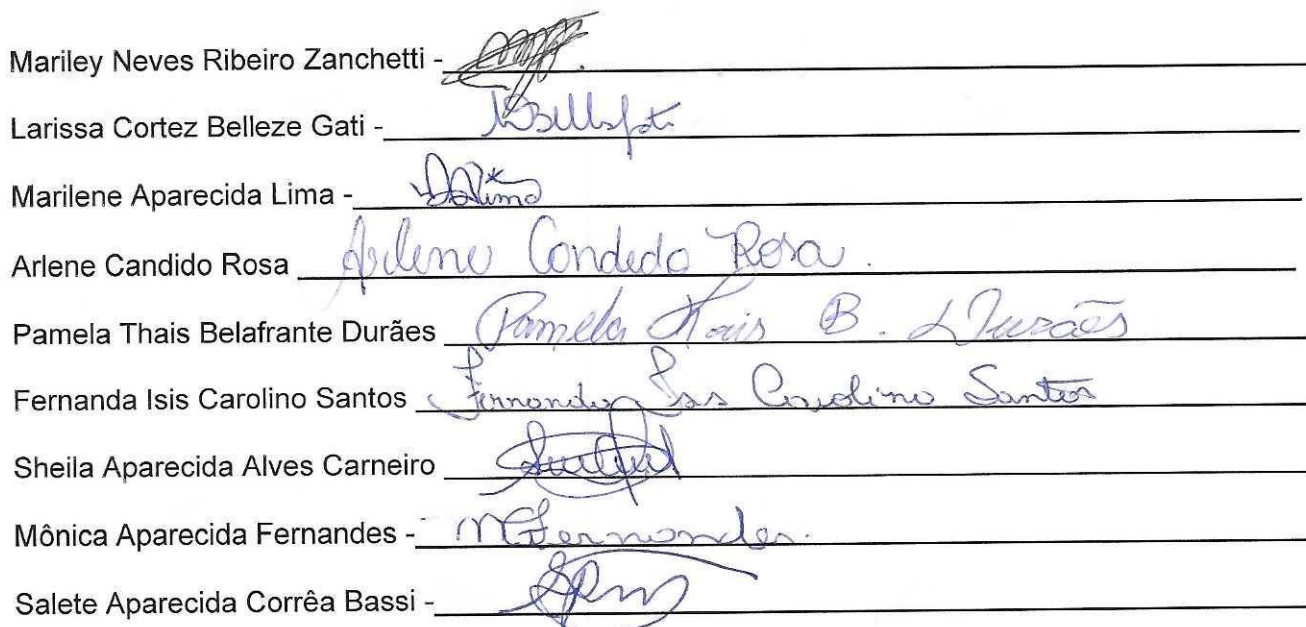 Mariley Neves Ribeiro Zanchetti -
Larissa Cortez Belleze Gati -
Marilene Aparecida Lima -
Arlene Candido Rosa Arlene Candido Rosa.
Pamela Thais Belafrante Durães Pamela Thais B. Durães
Fernanda Isis Carolino Santos Fernanda Isis Carolino Santos
Sheila Aparecida Alves Carneiro
Mônica Aparecida Fernandes - MFernandes.
Salete Aparecida Corrêa Bassi -